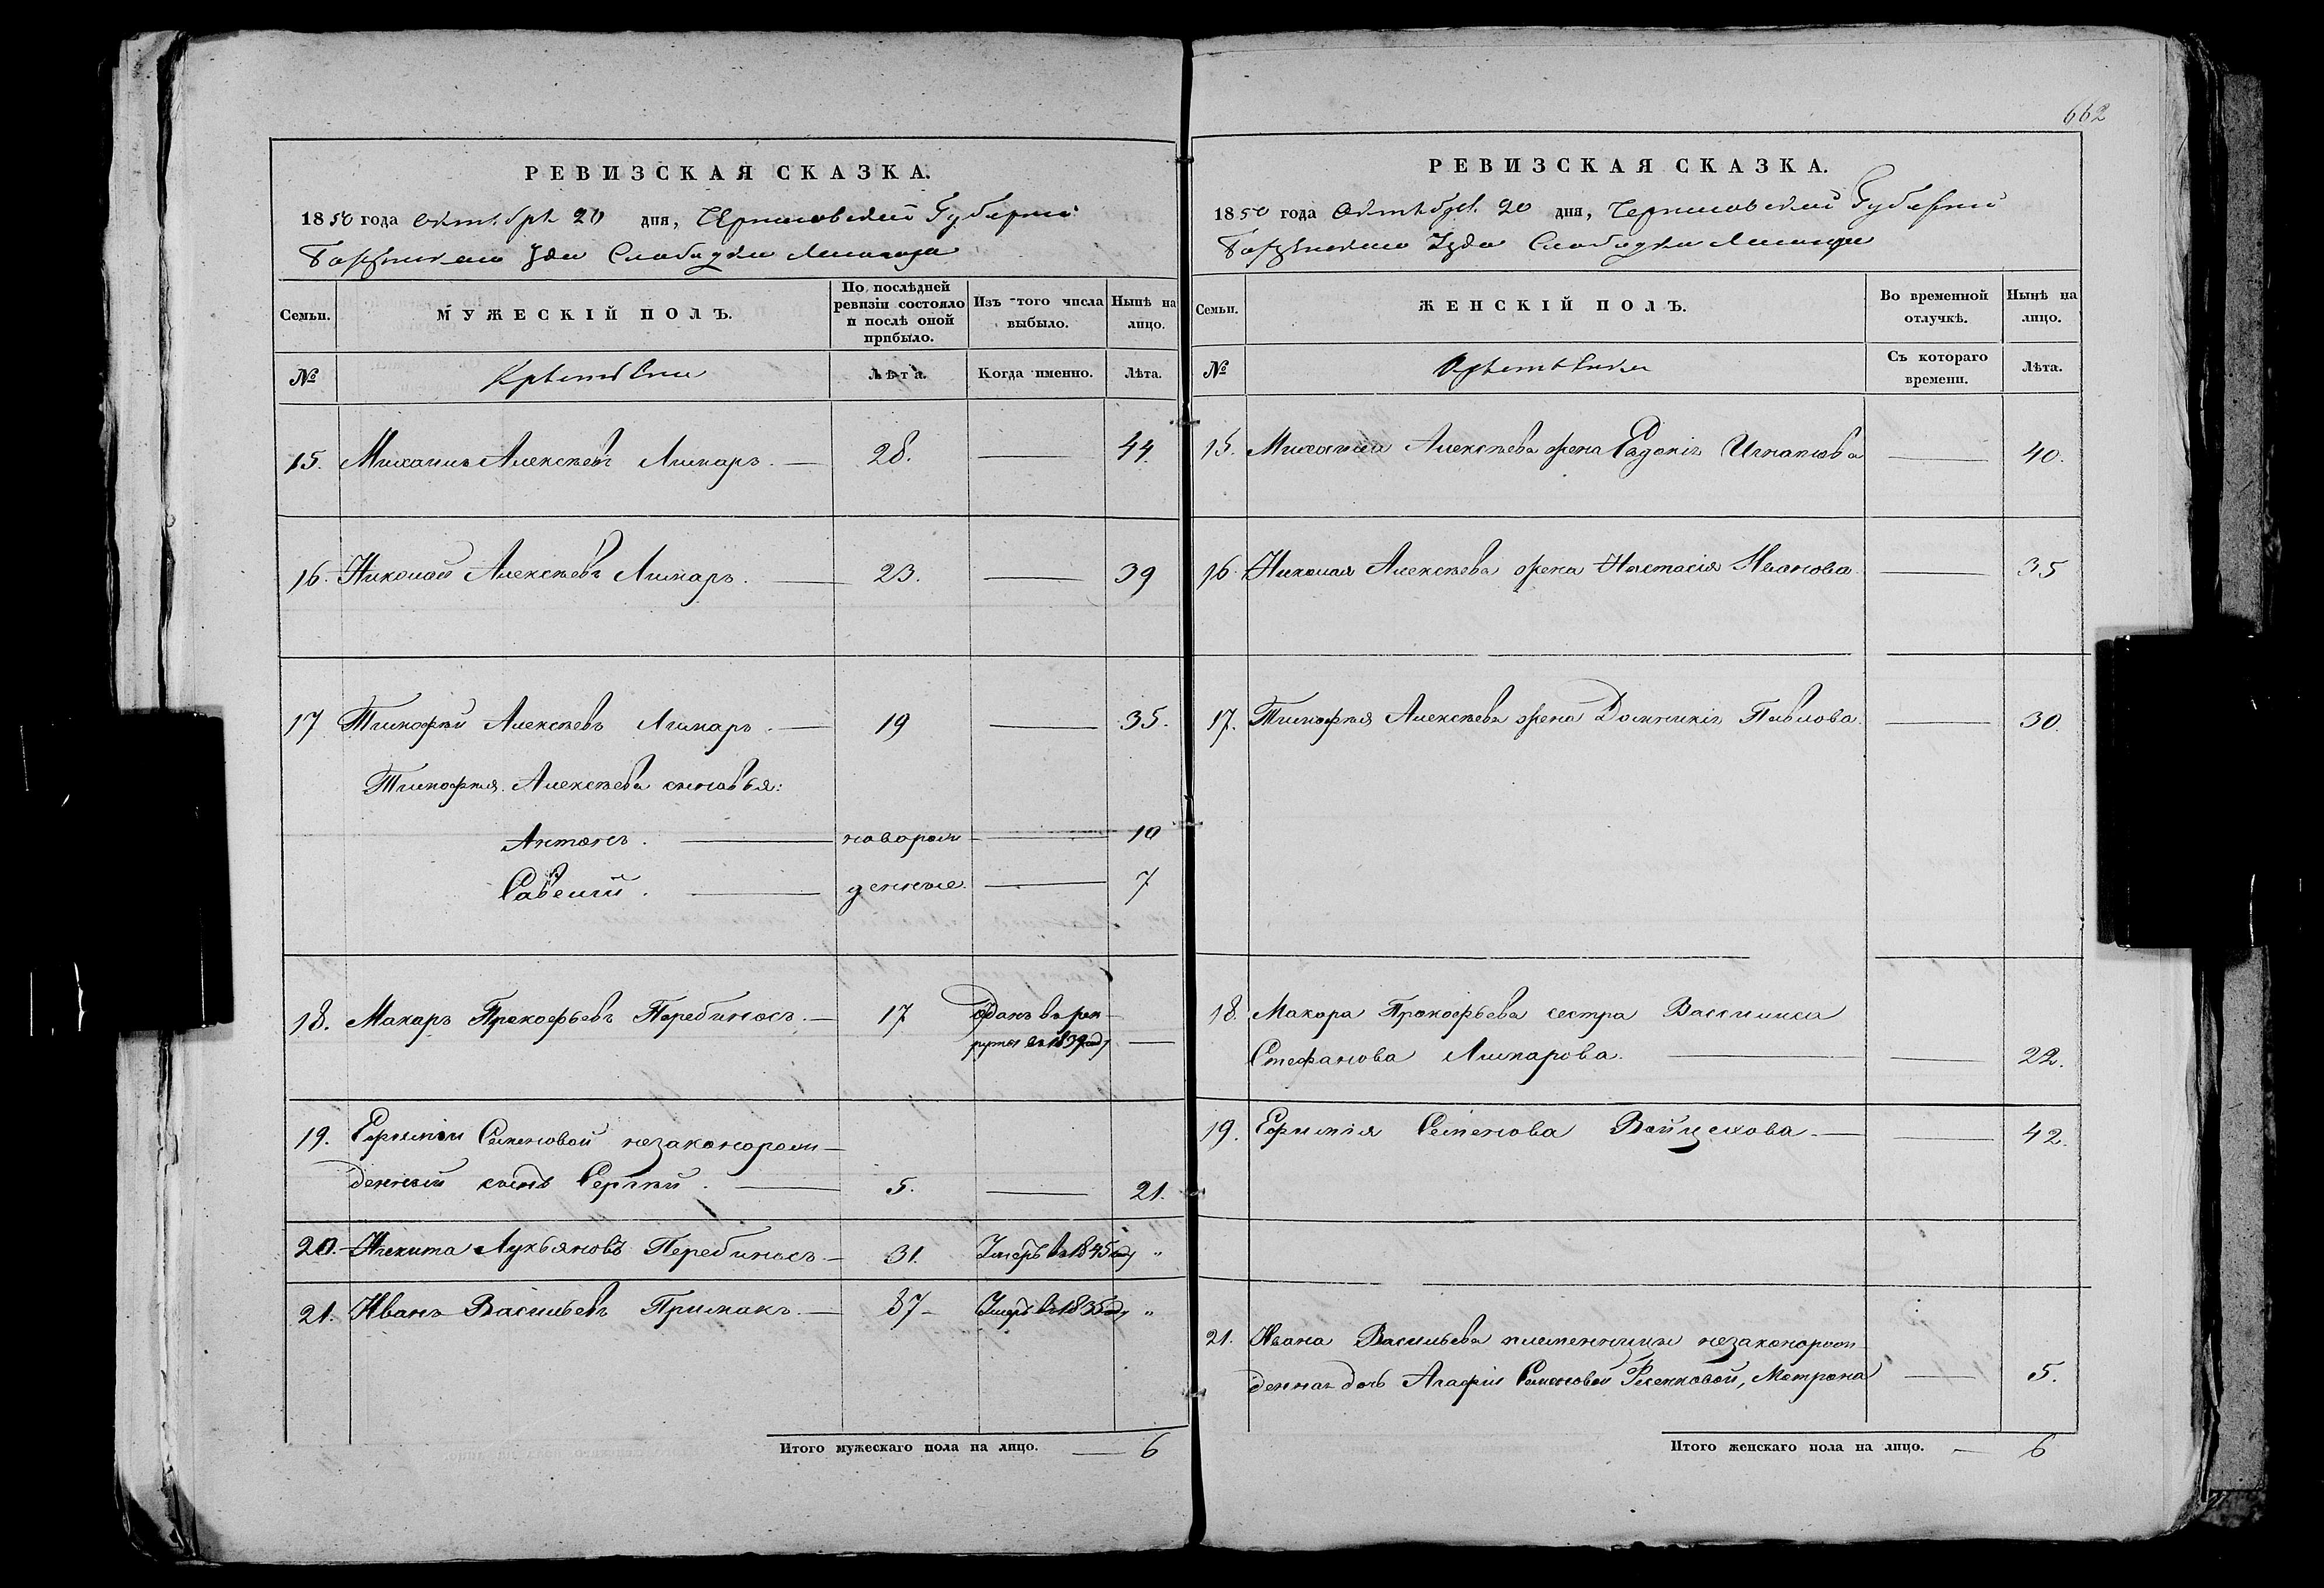 662
РЕВИЗСКАЯ СКАЗКА.
1850 года Октября 20 дня, Черниговской Губернии
Борзенскаго Уѣзда Слободки
Семьи.
МУЖЕСКІЙ ПОЛЪ.
По послѣдней ревизіи состояло и послѣ оной прибыло.
Изъ того числа выбыло.
Нынѣ на лицо.
№
Крестьяне
Лѣта.
Когда именно.
Лѣта.
15. Михаилъ Алексѣевъ Лимаръ. — 28. — 44.
16. Николай Алексѣевъ Лимаръ. — 23. — 39
17 Тимофѣй Алексѣевъ Лимаръ. — 19 — 35.
Тимофѣя Алексѣева сыновья:
Антонъ. — новорож — 10
Савелий. — денные. — 7
18. Макаръ Прокофьевъ Перебиносъ. — 17 Отданъ въ рек-
руты въ 1839году —
19. Ефиміи Семеновой незаконорож-
денный сынъ Сергѣй. — 5. — 21.
20. Никита Лукьяновъ Перебиносъ — 31. Умеръ въ 1845году "
21. Иванъ Васильевъ Примакъ. — 37 — Умеръ въ 1835году "
Итого мужескаго пола на лицо. — 6
РЕВИЗСКАЯ СКАЗКА.
1850 года Октября 20 дня, Черниговской Губернии
Борзенскаго Уѣзда Слободки
Семьи.
ЖЕНСКІЙ ПОЛЪ.
Во временной отлучкѣ.
Нынѣ на лицо.
№
Съ котораго времени.
Лѣта.
15. Михаила Алексѣева жена Евдокія Игнатова — 40.
16. Николая Алексѣева жена Настасія Иванова — 35
17. Тимофѣя Алексѣева жена Домникія Павлова. — 30.
18. Макара Прокофьева сестра Василиса
Стефанова Лимарова. — 22.
19. Ефимія Семенова Войцехова — 42.
21. Ивана Васильева племенницы незаконорож-
денная дочь Агафіи Семеновой, Матрона — 5.
Итого женскаго пола на лицо. — 6